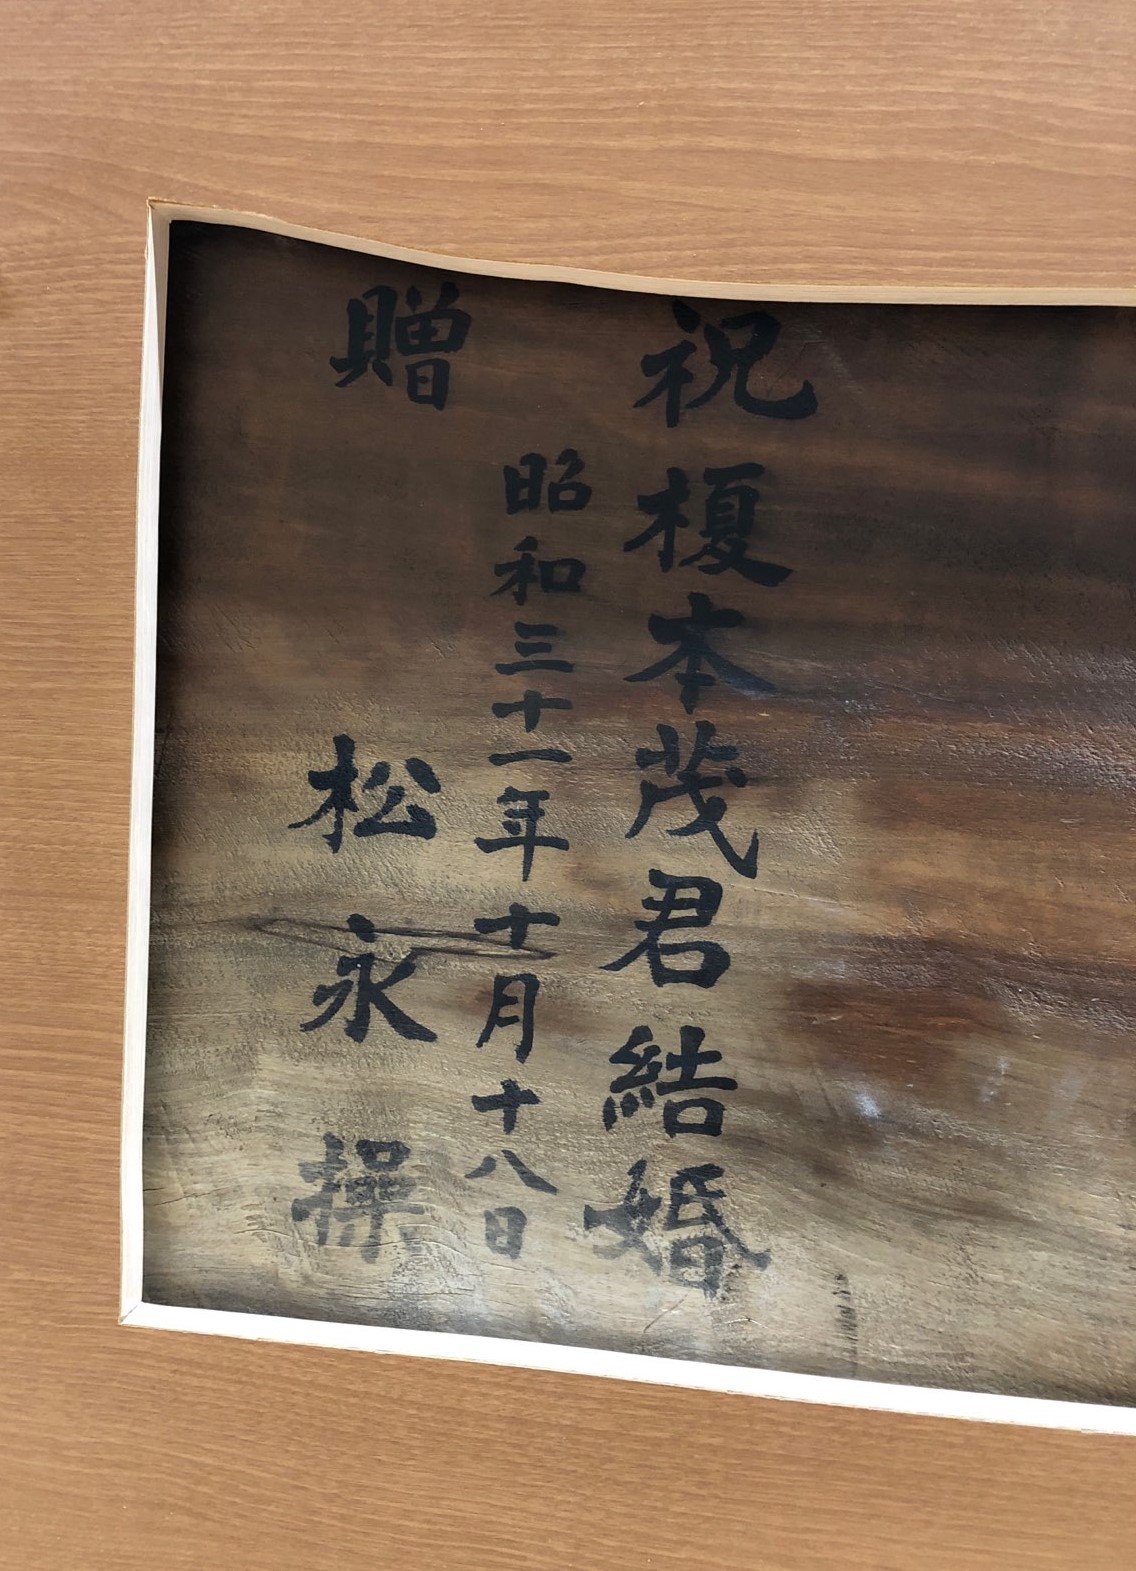 祝 榎本茂君結婚
昭和三十一年十月十八日
贈 松永操